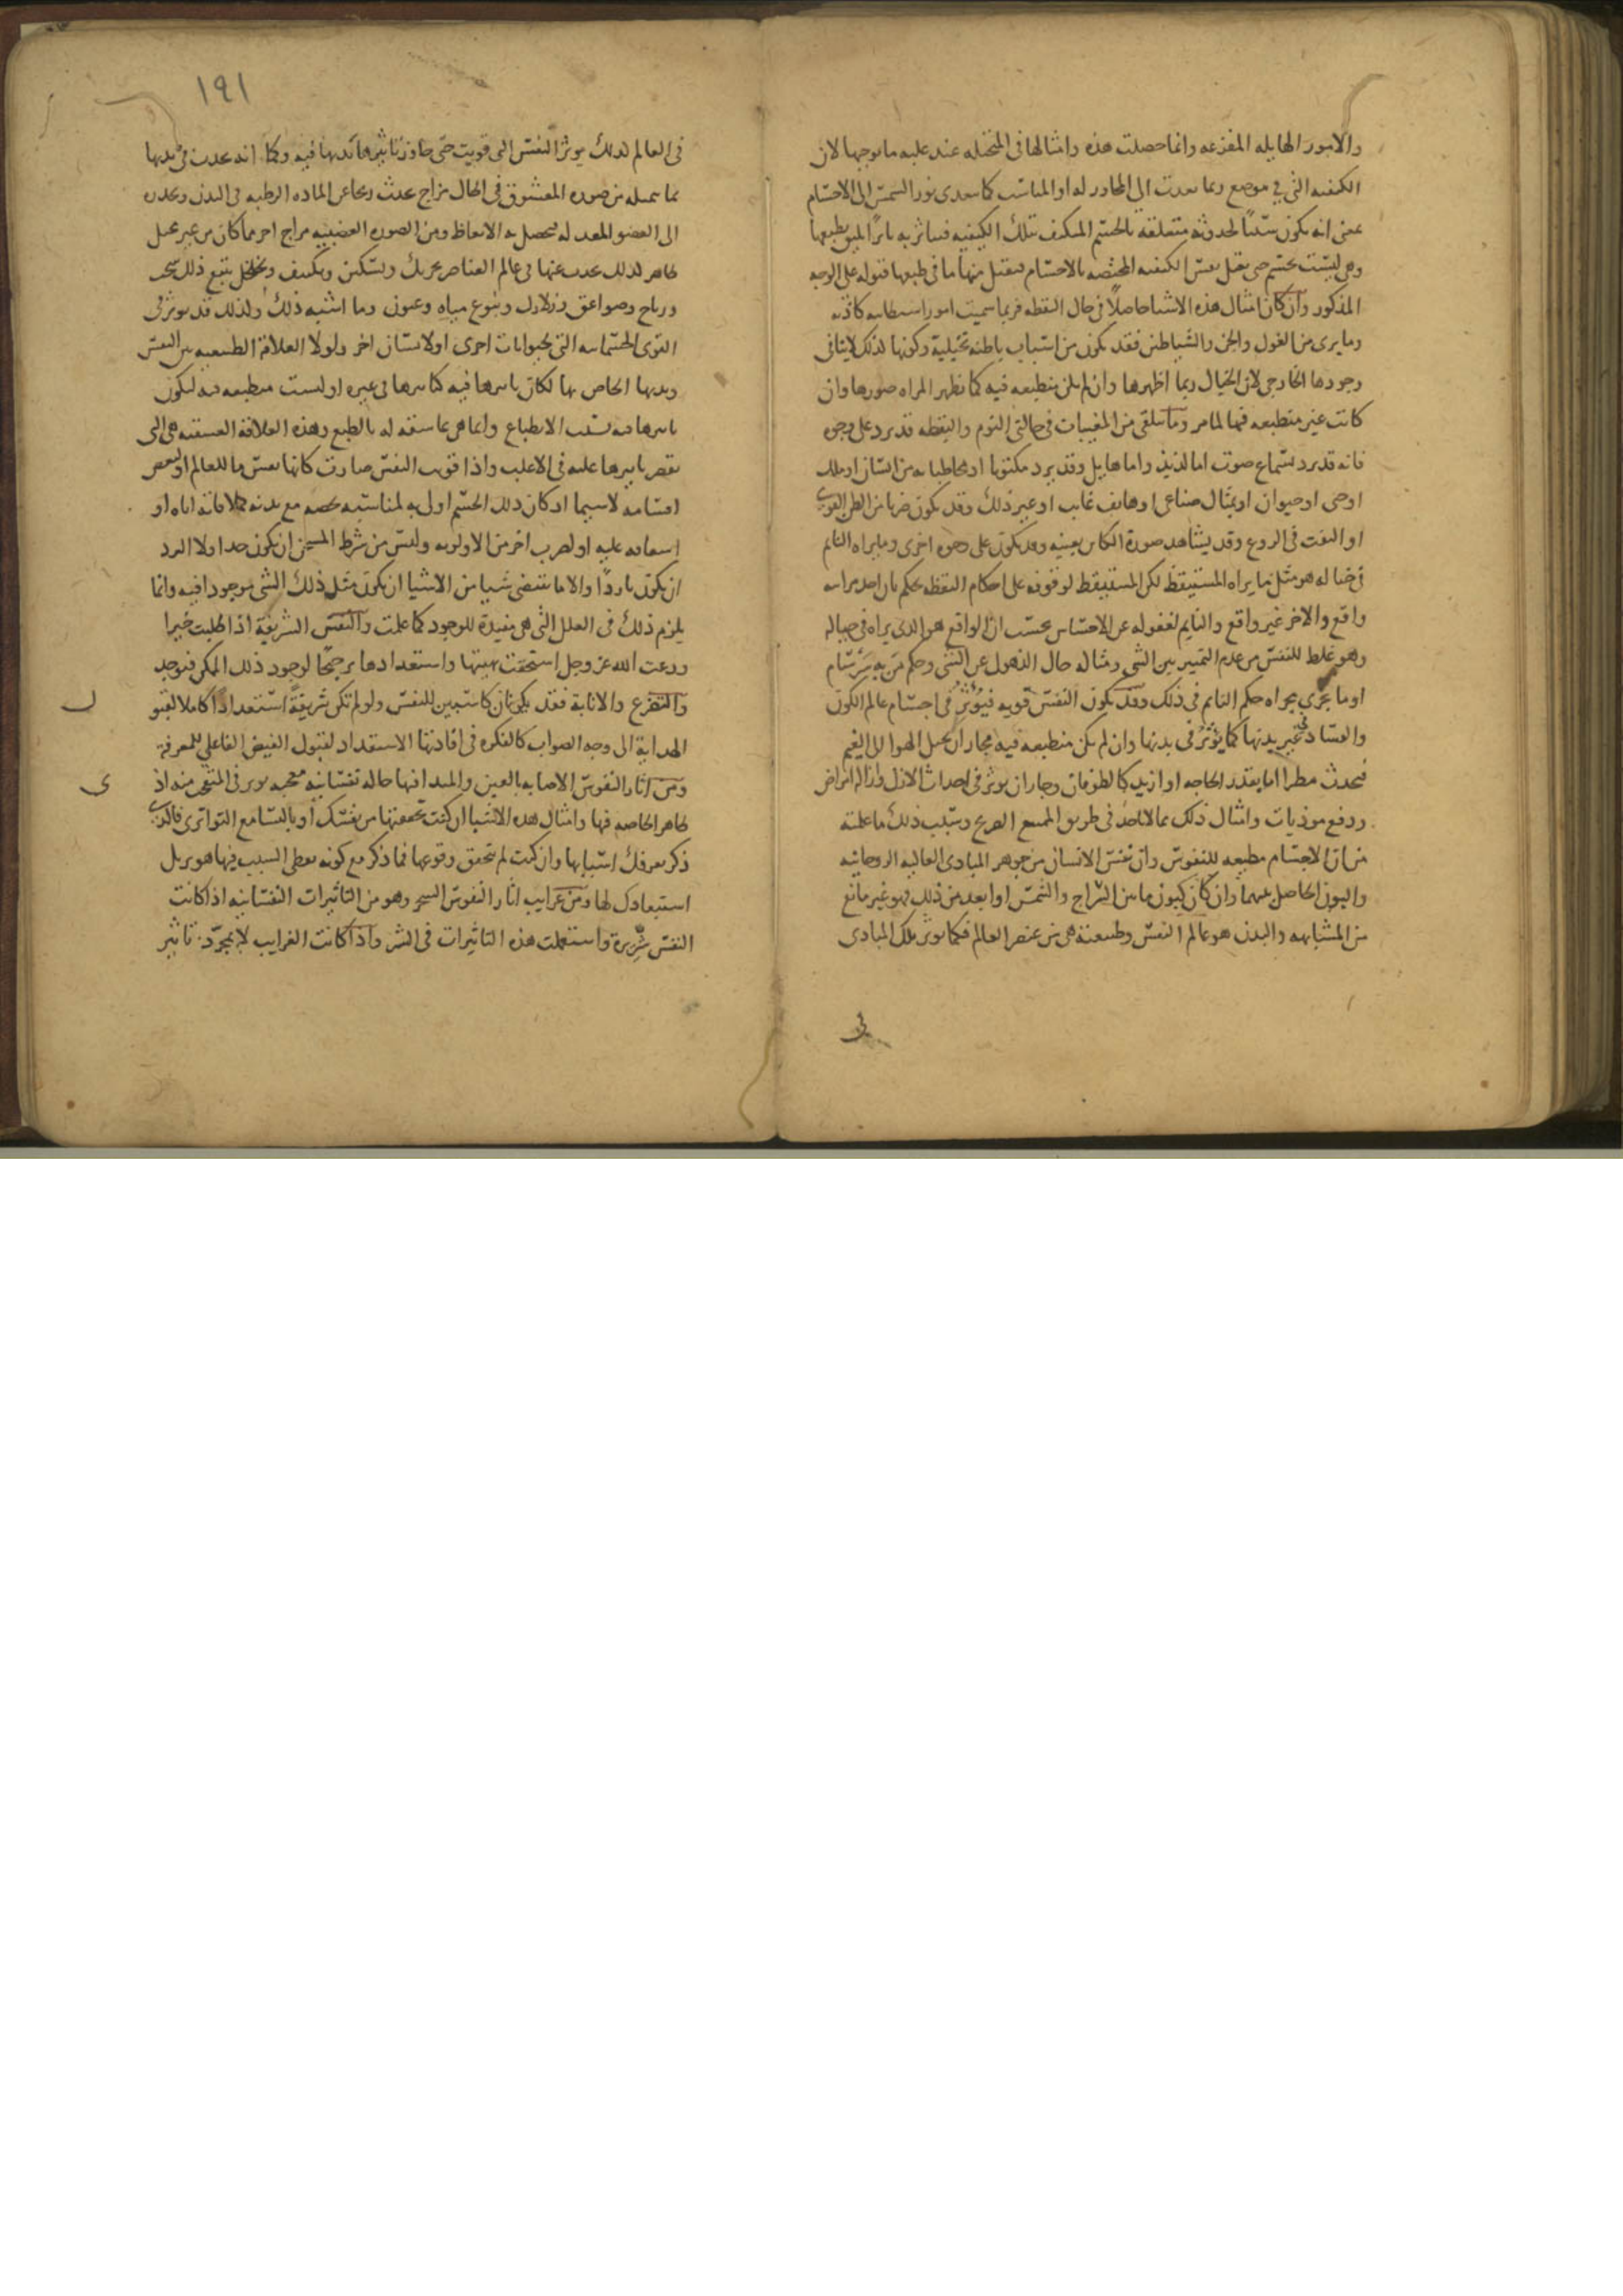 والامور الهايله المفزعه وانما حصلت هذه وامثالها فى المتخيله عند غلبه ما يوجبها لان
الكيفيه التى فى موضع ربما تعدت الى المجاور له او المناسب كما يتعدى نور الشمس الى الاجسام
بمعنى انه يكون سببًا لحدوثه متعلقه بالجسم المتكيف بتلك الكيفيه فيتاثر به تاثرًا يليق بطبعها
وهى ليست بجسم حتى تقبل نفس الكيفيه المختصه بالاجسام فتقبل منها ما فى طبعها قبوله على الوجه
المذكور وان كان امثال هذه الاشيا حاصلًا فى حال اليقظه فربما سميت امورا شيطانيه كاذبه
وما يرى من الغول والجن والشياطين فقد يكون من اسباب باطنه تخيلية وكونها كذلك لاينافى
وجودها الخارجى لان الخيال ربما اظهرها وان لم تكن منطبعه فيه كما تظهر المراه صورها وان
كانت غير منطبعه فيها لما مر وما يتلقى من المغيبات فى حالتى النوم واليقظه قد يرد على وجوه
فانه قد يرد بسماع صوت اما لذيذ واما هايل وقد يرد مكتوبا او مخاطبا به من انسان او ملك
او جنى او حيوان او تمثال صناعى او هاتف غايب او غير ذلك وقد يكون ضربا من الظن القوى
او النفث فى الروع وقد يشاهد صورة الكاين بعينه وقد يكون على وجوه اخرى وما يراه النايم
فى خياله هو مثل ما يراه المستيقظ لكن المستيقظ لوقوفه على احكام اليقظه يحكم بان احد مراييه
واقع والاخر غير واقع والنايم لغفوله عن الاحساس يحسب ان الواقع هو الذى يراه فى خياله
وهو غلط للنفس من عدم التمييز بين الشى ومثاله حال الذهول عن الشى وحكم من به سرسام
او ما يجرى مجراه حكم النايم فى ذلك وقد تكون النفس قويه فيؤثر فى اجسام عالم الكون
والفساد فى غير بدنها كما يؤثر فى بدنها وان لم تكن منطبعه فيه فجاز ان تحيل الهوا الى الغيم
فيحدث مطرا اما بقدر الحاجه او ازيد كالطوفان وجاز ان يؤثر فى احداث الزلازل وازاله امراض
ودفع موذيات وامثال ذلك مما لا ياخذ فى طريق الممتنع الصريح وسبب ذلك ما علمته
من ان الاجسام مطيعه للنفوس وان نفس الانسان من جوهر المبادى العاليه الروحانيه
والبون الحاصل بينهما وان كان كبون ما بين السراج والشمس او ابعد من ذلك فهو غير مانع
من المشابهه والبدن هو عالم النفس وطبيعته هى من عنصر العالم فكما يوثر تلك المبادى
فى
١٩١
فى العالم لذلك يوثر النفس التى قويت حتى جاوز تاثيرها بدنها فيه وكما انه يحدث فى بدنها
مما تتخيله من صوره المعشوق فى الحال مزاج يحدث ريحا عن الماده الرطبه فى البدن ويحدره
الى العضو المعد له فيحصل به الانعاظ ومن الصوره الغضبيه مزاج اخر مما كان من غير محيل
ظاهر كذلك يحدث عنها فى عالم العناصر تحريك وتسكين وتكثيف وتخلخل يتبع ذلك سحب
ورياح وصواعق وزلازل ونبوع مياه وعيون وما اشبه ذلك ولذلك قد يوثر فى
القوى الجسمانيه التى لحيوانات اخرى او لانسان اخر ولولا العلاقة الطبيعيه بين النفس
وبدنها الخاص بها لكان تاثيرها فيه كتاثيرها فى غيره اذ ليست منطبعه فيه ليكون
تاثيرها فيه بسبب الانطباع وانما هى عاشقه له بالطبع وهذه العلاقة العشقيه هى التى
تقصر تاثيرها عليه فى الاغلب واذا قويت النفس صارت كانها نفس ما للعالم او لبعض
اقسامه لا سيما اذ كان ذلك الجسم اولى به لمناسبه تخصه مع بدنه كملاقاته اياه او
اشفاقه عليه او لضرب اخر من الاولويه وليس من شرط المسخن ان يكون حارا ولا المبرد
ان يكون باردًا والا ما تقتضى شيا من الاشيا ان يكون مثل ذلك الشى موجودا فيه وانما
يلزم ذلك فى العلل التى هى مفيدة للوجود كما علمت والنفس الشريفة اذا طلبت خيرا
ودعت الله عز وجل استحقت بهيتها واستعدادها ترجيحًا لوجود ذلك الممكن فيوجد
والتضرع والانابة فقد يكونان كاسبين للنفس ولو لم تكن شريفةً استعدادًا كاملا لقبول
الهداية الى وجه الصواب كالفكره فى افادتها الاستعداد لقبول الفيض الفاعلى للمعرفة
ومن اثار النفوس الاصابه بالعين والمبدا فيها حاله نفسانيه معجبه توثر فى المتعجب منه اذى
ظاهر الخاصه فيها وامثال هذه الاشيا ان كنت تحققتها من نفسك او بالتسامع التواترى فالذى
ذكر يعرفك اسبابها وان كنت لم تتحقق وقوعها فما ذكر مع كونه يعطى السبب فيها هو يزيل
استبعادك لها ومن غرايب اثار النفوس السحر وهو من التاثيرات النفسانيه اذا كانت
النفس شريرة واستعملت هذه التاثيرات فى الشر واذا كانت الغرايب لا بمجرّد تاثير